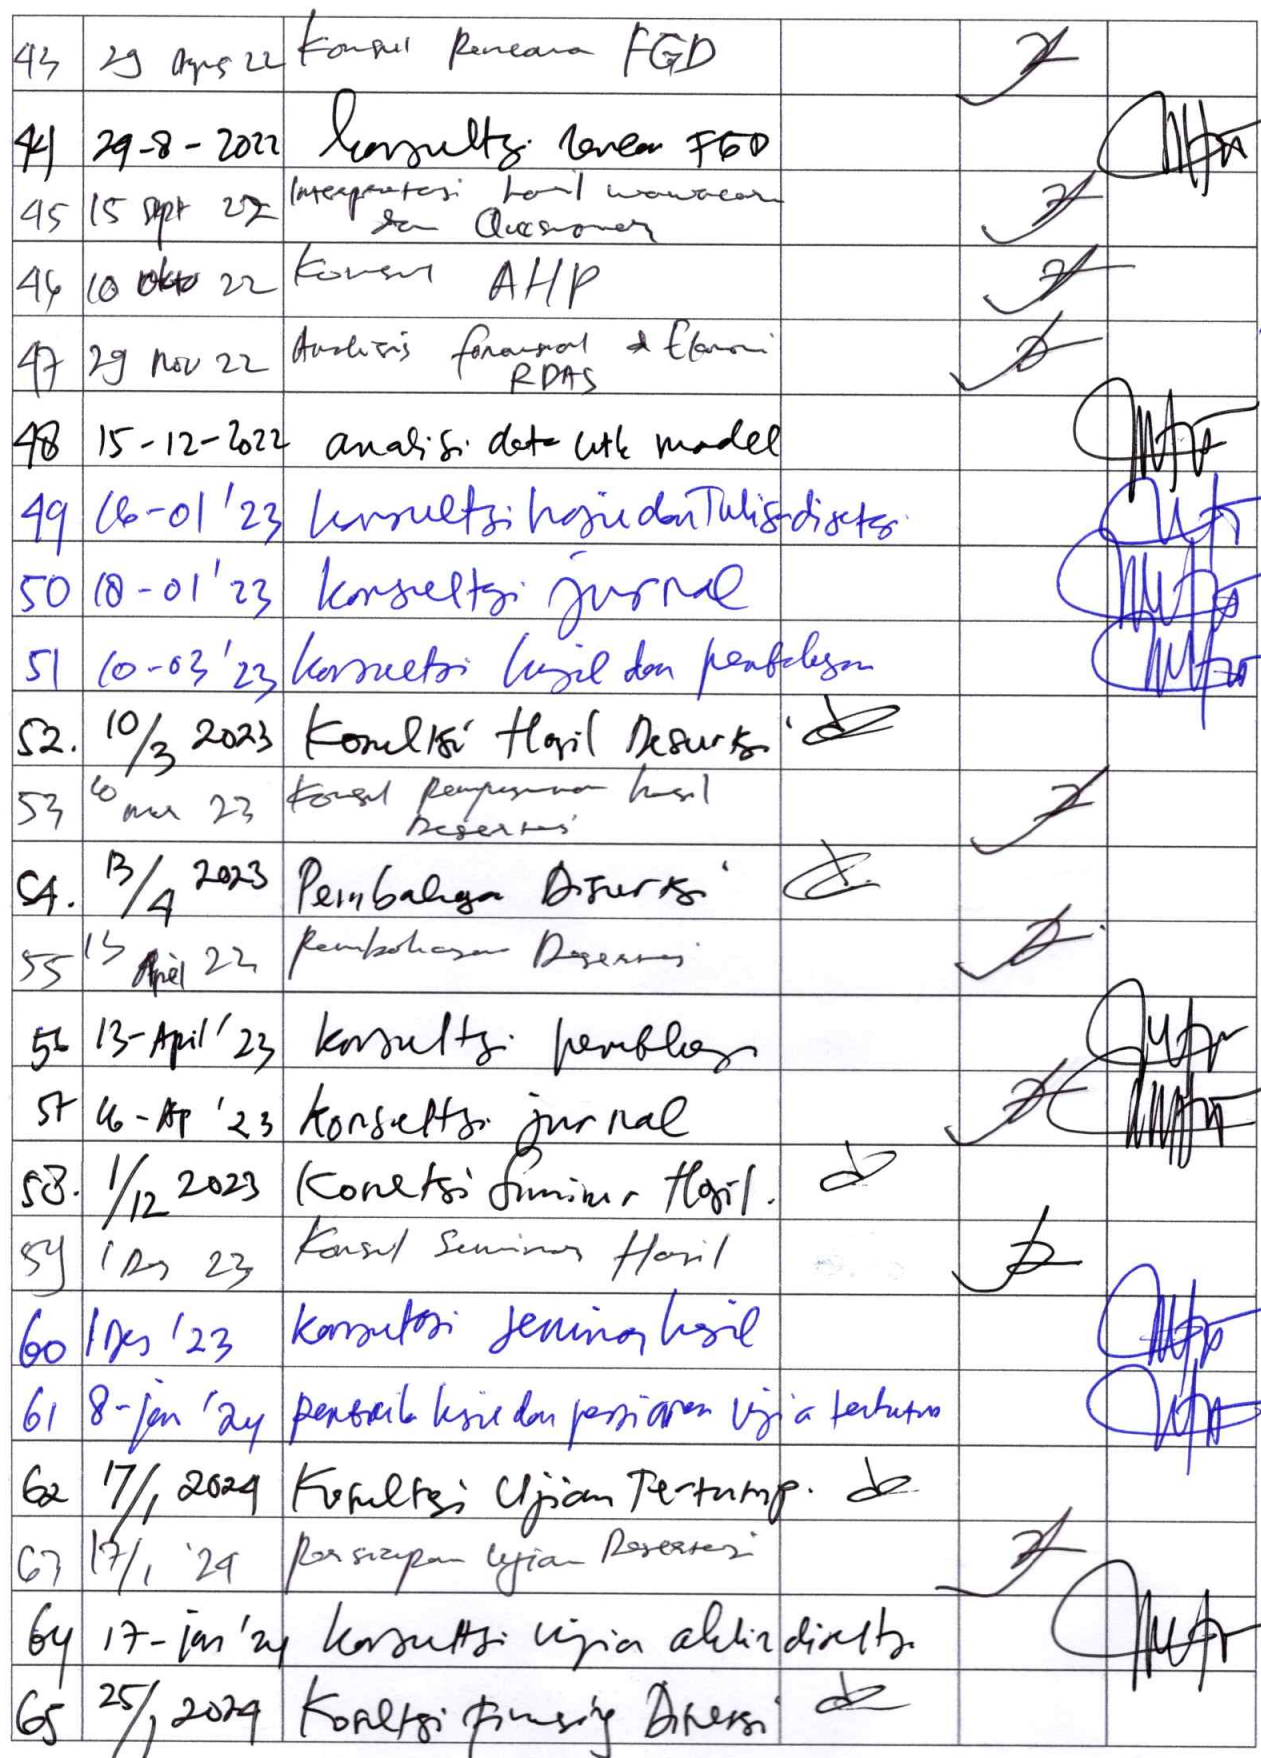 43 29 Agus 22 Konsul Rencana FGD
44 29-8-2022 konsultsi rencan FGD
45 15 Sept 22 Interpretasi hasil wawancara
dan Quesioner
46 10 Okto 22 Konsul AHP
47 29 Nov 22 Analisis finansial & Ekonomi
RDAS
48 15-12-2022 analisi data utk model
49 16-01'23 konsultsi hasil dan Tulisan disetasi
50 18-01'23 konsultsi jurnal
51 10-03'23 konsultsi hasil dan pembahasan
52. 10/3 2023 Konsultsi Hasil Disertasi
53 10 mar 23 Konsul hasil
Desertasi
54. 13/4 2023 Pembahasan Disertasi
55 13 April 22 Pembahasan Desertasi
56 13-April'23 konsultsi
57 16-Ap '23 Konsultsi jurnal
58. 1/12 2023 Konsultsi Seminar Hasil.
59 1 Des 23 Konsul Seminar Hasil
60 1 Des '23 konsultasi seminar hasil
61 8-jan '24 hasil dan persiapan ujia tertutup
62 17/1 2024 Konsultsi Ujian Tertutup.
63 17/1 '24 Persiapan Ujian Desertasi
64 17-jan '24 konsultsi ujia akhir
65 25/1 2024 Konsultsi Disertasi